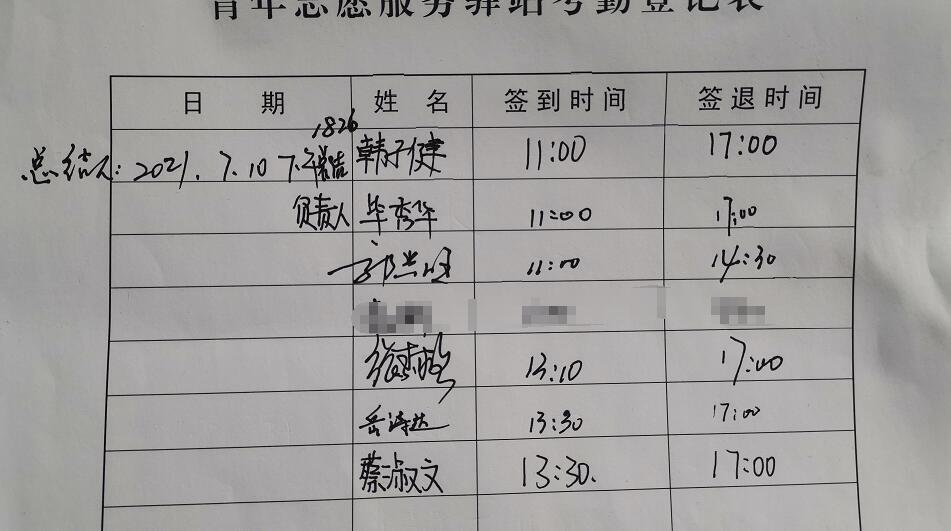 青年志愿服务驿站考勤登记表
日 期 姓 名 签到时间 签退时间
1826
总结人: 2021. 7.10 韩子健 11:00 17:00
负责人 毕秀华 11:00 17:00
11:00 14:30
13:10 17:00
岳诗达 13:30 17:00
蔡淑文 13:30. 17:00